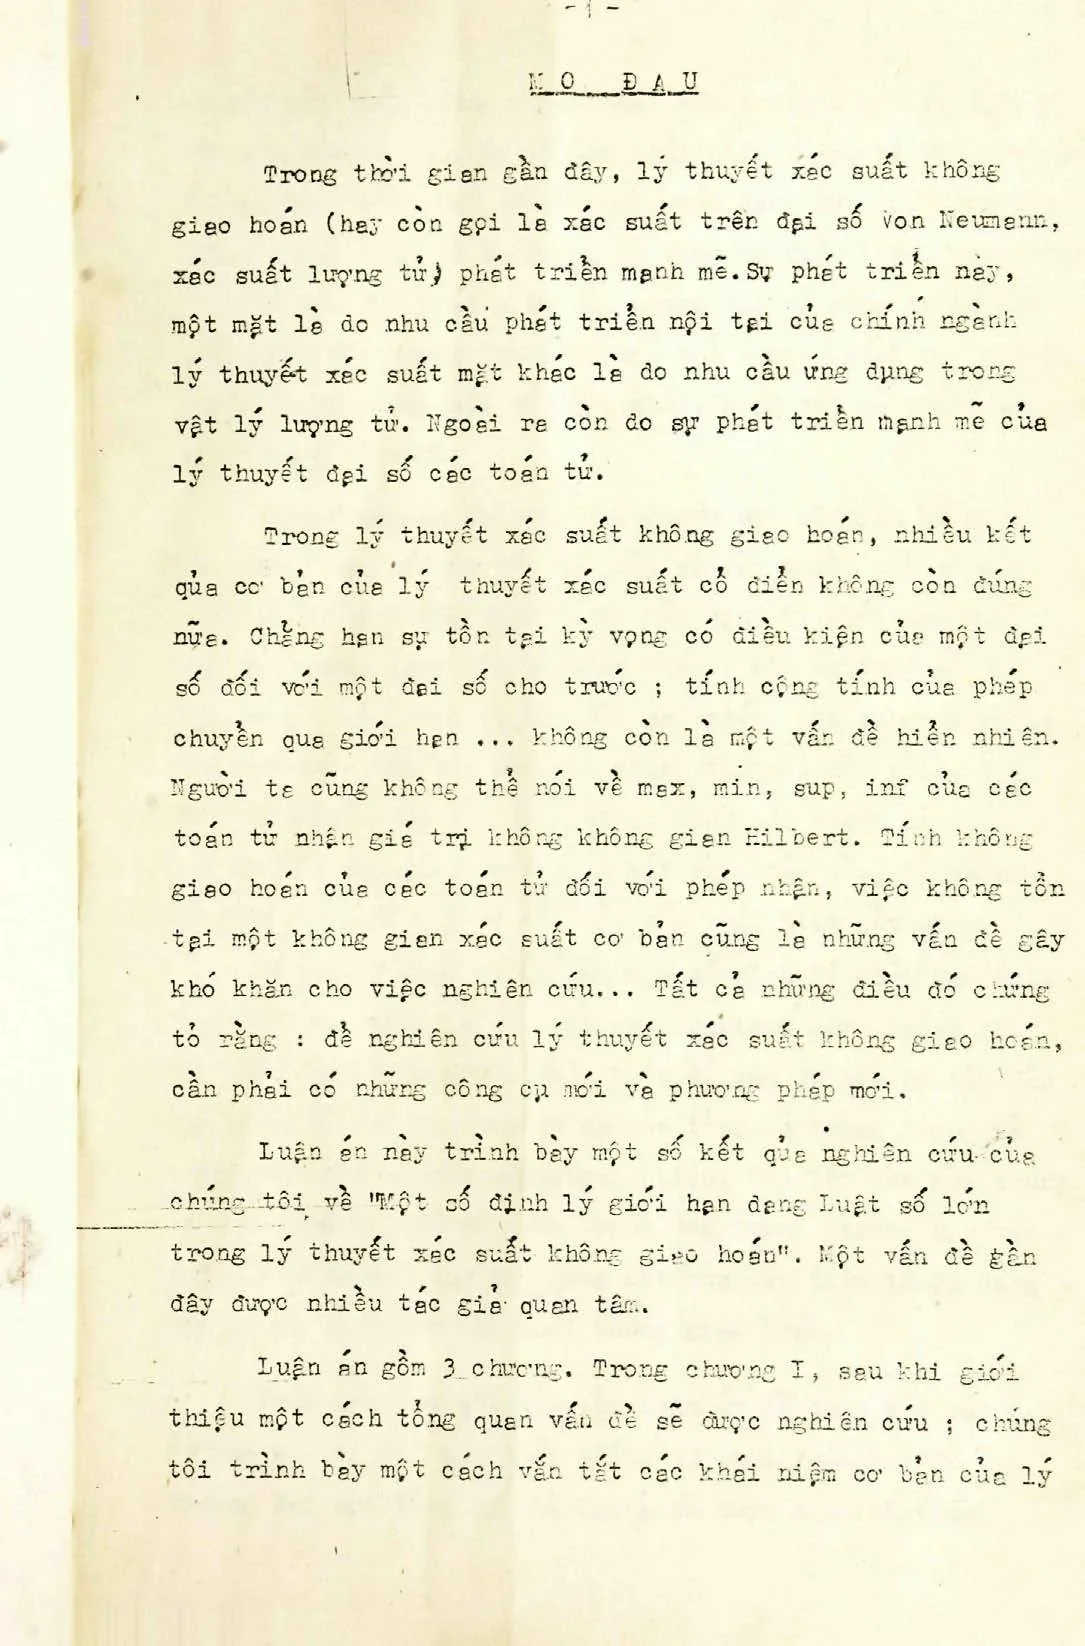 - 1 -
M O Đ A U
Trong thời gian gần đây, lý thuyết xác suất không
giao hoán (hay còn gọi là xác suất trên đại số Von Neumann,
xác suất lượng tử) phát triển mạnh mẽ.Sự phát triển này,
một mặt là do nhu cầu phát triển nội tại của chính ngành
lý thuyết xác suất mặt khác là do nhu cầu ứng dụng trong
vật lý lượng tử. Ngoài ra còn do sự phát triển mạnh mẽ của
lý thuyết đại số các toán tử.
Trong lý thuyết xác suất không giao hoán, nhiều kết
qủa cơ bản của lý thuyết xác suất cổ điển không còn đúng
nữa. Chẳng hạn sự tồn tại kỳ vọng có điều kiện của một đại
số đối với một đại số cho trước ; tính cộng tính của phép
chuyển qua giới hạn ... không còn là một vấn đề hiển nhiên.
Người ta cũng không thể nói về max, min, sup, inf của các
toán tử nhận giá trị không không gian Hilbert. Tính không
giao hoán của các toán tử đối với phép nhận, việc không tồn
tại một không gian xác suất cơ bản cũng là những vấn đề gây
khó khăn cho việc nghiên cứu... Tất cả những điều đó chứng
tỏ rằng : để nghiên cứu lý thuyết xác suất không giao hoán,
cần phải có những công cụ mới và phương pháp mới.
Luận án này trình bày một số kết qủa nghiên cứu của
chúng tôi về "Một số định lý giới hạn dạng Luật số lớn
trong lý thuyết xác suất không giao hoán". Một vấn đề gần
đây được nhiều tác giả quan tâm.
Luận án gồm 3 chương. Trong chương I, sau khi giới
thiệu một cách tổng quan vấn đề sẽ được nghiên cứu ; chúng
tôi trình bày một cách vắn tắt các khái niệm cơ bản của lý